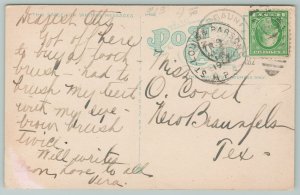 Dearest Ott
Got off here
to buy a tooth
brush - had to
brush my teeth
with my eye-
brow brush
twice.
Will write
soon, love to all
Vera.
POST
Miss
O. Coreth
New Braunfels
Tex -
HOU. & 
R.P.O.